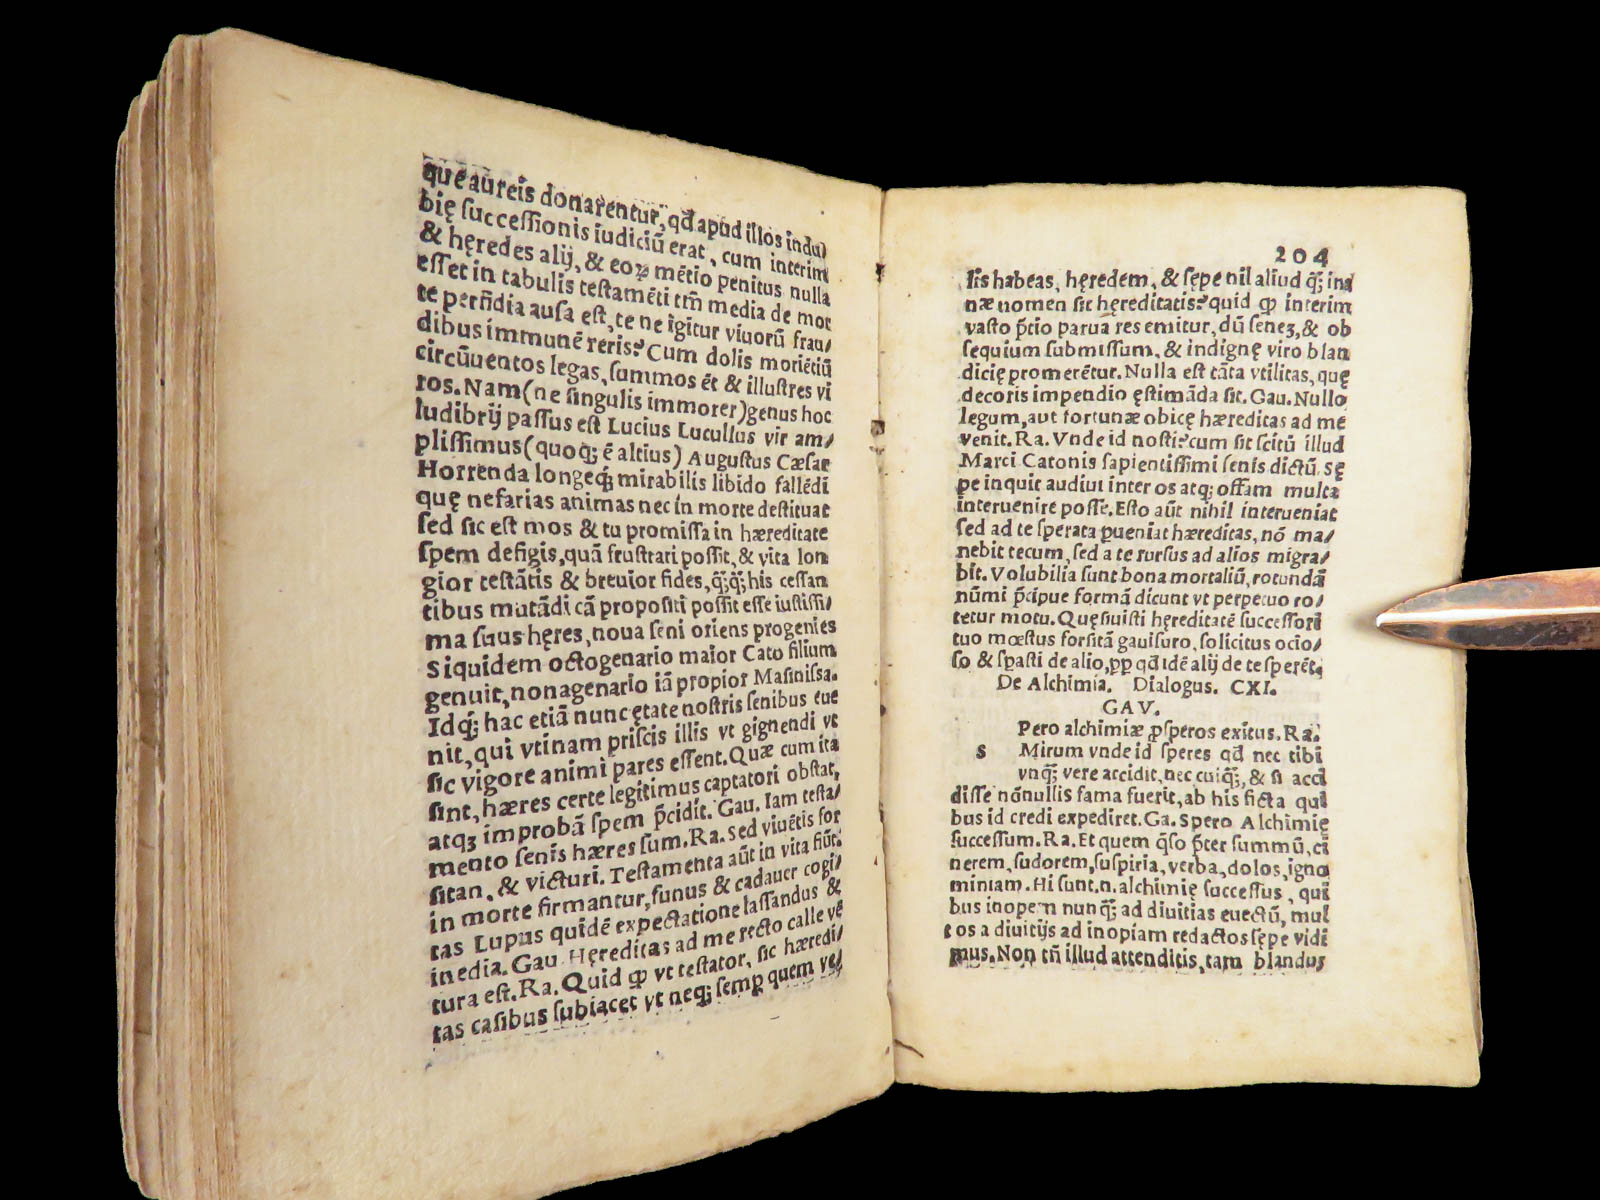 quē aureis donarentur, qđ apud illos indu/
bię successionis iudiciū erat, cum interim
& hęredes alij, & eoꝝ mētio penitus nulla
esset in tabulis testamēti tm̄ media de mor
te perfidia ausa est, te ne īgitur viuorū frau/
dibus immunē reris? Cum dolis moriētiū
circūuentos legas, summos ēt & illustres vi
ros. Nam (ne singulis immorer) genus hoc
ludibrij passus est Lucius Lucullus vir am/
plissimus (quoq; ē altius) Augustus Cæsar
Horrenda longeq; mirabilis libido fallēdi
quę nefarias animas nec in morte destituat
sed sic est mos & tu promissa in hæreditate
spem defigis, quā frustrari possit, & vita lon
gior testātis & breuior fides, q;q; his cessan
tibus mutādi cā propositi possit esse iustissi/
ma suus hęres, noua seni oriens progenies
Siquidem octogenario maior Cato filium
genuit, nonagenario iā propior Masinissa.
Idq; hac etiā nunc ętate nostris senibus eue
nit, qui vtinam priscis illis vt gignendi vt
sic vigore animi pares essent. Quæ cum ita
sint, hæres certe legitimus captatori obstat,
atqꝫ improbā spem p̄cidit. Gau. Iam testa/
mento senis hæres sum. Ra. Sed viuētis for
sitan, & victuri. Testamenta aūt in vita fiūt:
in morte firmantur, funus & cadauer cogi/
tas Lupus quidē expectatione lassandus &
inedia. Gau. Hęreditas ad me recto calle vē
tura est. Ra. Quid ꝙ vt testator, sic hæredi/
tas casibus subiacet vt neq; semp quem ve/
204
lis habeas, hęredem, & sępe nil aliud q̄; ina
næ nomen sit hęreditatis? quid ꝙ interim
vasto p̄tio parua res emitur, dū senez, & ob
sequium submissum, & indignę viro blan
dicię promerētur. Nulla est tāta vtilitas, quę
decoris impendio ęstimāda sit. Gau. Nullo
legum, aut fortunæ obicę hæreditas ad me
venit. Ra. Vnde id nosti? cum sit scitū illud
Marci Catonis sapientissimi senis dictū. Sę
pe inquit audiui inter os atq; offam multa
interuenire posse. Esto aūt nihil interueniat
sed ad te sperata ꝑueniat hæreditas, nō ma/
nebit tecum, sed a te rursus ad alios migra/
bit. Volubilia sunt bona mortaliū, rotundā
nūmi p̄cipue formā dicunt vt perpetuo ro/
tetur motu. Quęsiuisti hęreditatē successori
tuo mœstus forsitā gauisuro, solicitus ocio/
so & spasti de alio, ꝓp qđ idē alij de te sperēt.
De Alchimia. Dialogus. CXI.
GAV.
Pero alchimiæ ꝓsperos exitus. Ra.
s Mirum vnde id speres qđ nec tibi
vnq̄; vere accidit, nec cuiq̄;, & si acci
disse nōnullis fama fuerit, ab his ficta qui
bus id credi expediret. Ga. Spero Alchimię
successum. Ra. Et quem q̄so p̄ter summū, ci
nerem, sudorem, suspiria, verba, dolos, igno
miniam. Hi sunt .n. alchimię successus, qui
bus inopem nunq̄; ad diuitias euectū, mul
tos a diuitijs ad inopiam redactos sępe vidi
mus. Non tn̄ illud attenditis, tam blandus